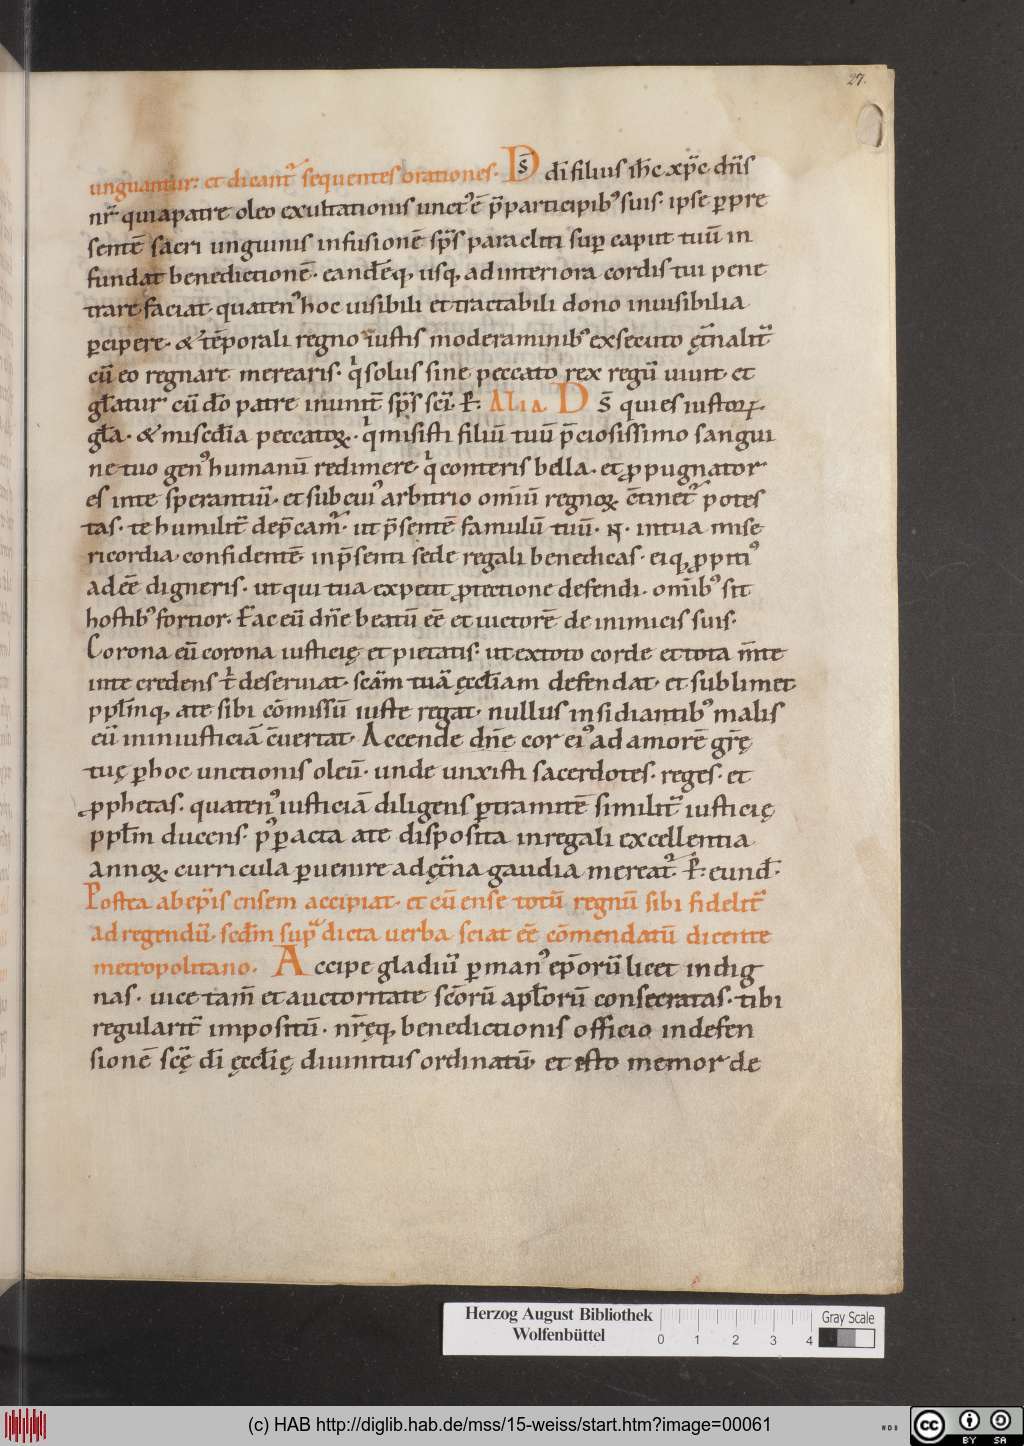 27.
unguantur: et dicant᷑ sequentes orationes. D s̄ dī filius ih̄c xp̄c dn̄s
nr̄ qui a patre oleo exultationis unct᷒ ē p̄ participib᷒ suis. ipse p̱ pre
sentē sacri unguinis infusionē sp̄s paracliti sup̱ caput tuū in
fundat benedictionē. eandēq; usq; ad interiora cordis tui pene
trare faciat. quaten᷒ hoc uisibili et tractabili dono inuisibilia
p̱cipere. & tēporali regno iustis moderaminib᷒ exsecuto ęt̄nalit᷑
cū eo regnare merearis. qͥ solus sine peccato rex regū uiuit. et
gl̄atur cū dō patre in unit̄ sp̄s sc̄i. P̱. ALIA D s̄ qui es iustoꝝ.
gl̄a. & misc̄dia peccatoꝝ. qͥ misisti filiū tuū p̄ciosissimo sangui
ne tuo gen᷒ humanū redimere. qͥ conteris bella. et ꝓpugnator
es in te sperantiū. et sub cui᷒ arbitrio om̄iū regnoꝝ c̄tinet᷑ potes
tas. te humilit᷑ dep̄cam᷑. ut p̄sentē famulū tuū. N̄. in tua mise
ricordia confidentē. in p̄senti sede regali benedicas. eiq; ꝓpiti᷒
adeē digneris. ut qui tua expetit ꝓtectione defendi. om̄ib᷒ sit
hostib᷒ fortior. Fac eū dn̄e beatū eē et uictorē de inimicis suis.
Corona eū corona iusticię et pietatis. ut ex toto corde et tota m̄te
in te credens tͥ deseruiat. sc̄am tuā ęccl̄iam defendat. et sublimet
ppl̄mq; a te sibi cōmissū iuste regat. nullus insidiantib᷒ malis
eū in iniusticiā c̄uertat. Accende dn̄e cor ei᷒ ad amorē gr̄ę
tuę p̱ hoc unctionis oleū. unde unxisti sacerdotes. reges. et
ꝓphetas. quaten᷒ iusticiā diligens p̱ tramitē similit᷑ iusticię
ppl̄m ducens. p᷒ p̱acta a te disposita in regali excellentia
annoꝝ. curricula p̱uenire ad ęt̄na gaudia mereat᷑. P̱. eund̄.
Postea ab ep̄is ensem accipiat. et cū ense totū regnū sibi fidelit᷑
ad regendū. sc̄dm sup᷑dicta uerba sciat eē cōmendatū dicente
metropolitano. Accipe gladiū p̱ man᷒ ep̄orū licet indig
nas. uice tam̄ et auctoritate sc̄orū apl̄orū consecratas. tibi
regularit᷑ impositū. nr̄ęq; benedictionis officio in defen
sionē sc̄ę dī ęccl̄ię diuinitus ordinatū. et esto memor de
Herzog August Bibliothek
Wolfenbüttel
0 1 2 3 4
Gray Scale
(c) HAB http://diglib.hab.de/mss/15-weiss/start.htm?image=00061
cc BY SA